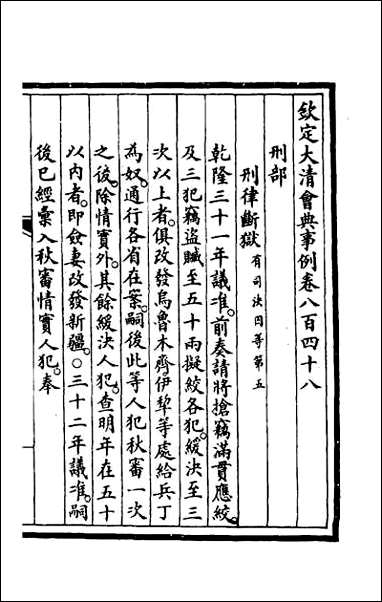 欽定大清會典事例卷八百四十八
刑部
刑律斷獄有司決囚等第五
乾隆三十一年議准。前奏請將搶竊滿貫應絞。
及三犯竊盜贓至五十兩擬絞各犯。緩決至三
次以上者。俱改發烏魯木齊伊犂等處給兵丁
為奴。通行各省在案。嗣後此等人犯秋審一次
之後。除情實外。其餘緩決人犯。查明年在五十
以內者。即僉妻改發新疆。○三十二年議准。嗣
後已經彙入秋審情實人犯。奉